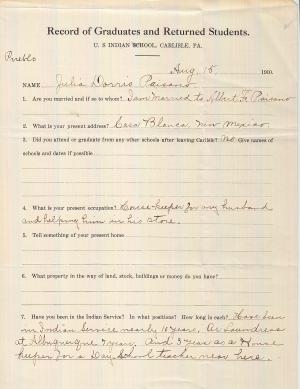 Record of Graduates and Returned Students.
U. S INDIAN SCHOOL, CARLISLE, PA.
Pueblo
Aug 15 1910.
NAME Julia Dorris Paisano
1. Are you married and if so to whom? I am married to Albert F. Paisano
2. What is your present address? Casa Blanca, New Mexico.
3. Did you attend or graduate from any other schools after leaving Carlisle? No Give names of
schools and dates if possible
4. What is your present occupation? House-keeper for my husband
and helping him in his store.
5. Tell something of your present home
6. What property in the way of land, stock, buildings or money do you have?
7. Have you been in the Indian Service? In what positions? How long in each? Have been
in Indian Service nearly 10 years, As Laundress
at Albuquerque 7 years, And 3 years as a House
keeper for a Day School teacher near here.